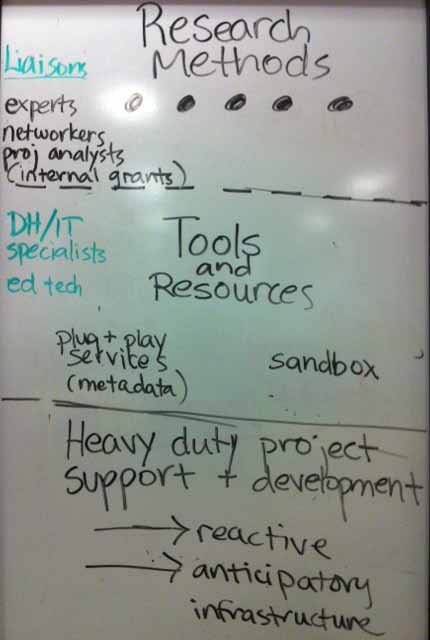 Research
Methods
Liaisons
experts
networkers
proj analysts
(internal grants)
DH/IT
specialists
ed tech
Tools
and
Resources
plug + play
services
(metadata)
sandbox
Heavy duty project
support + development
→ reactive
→ anticipatory
infrastructure